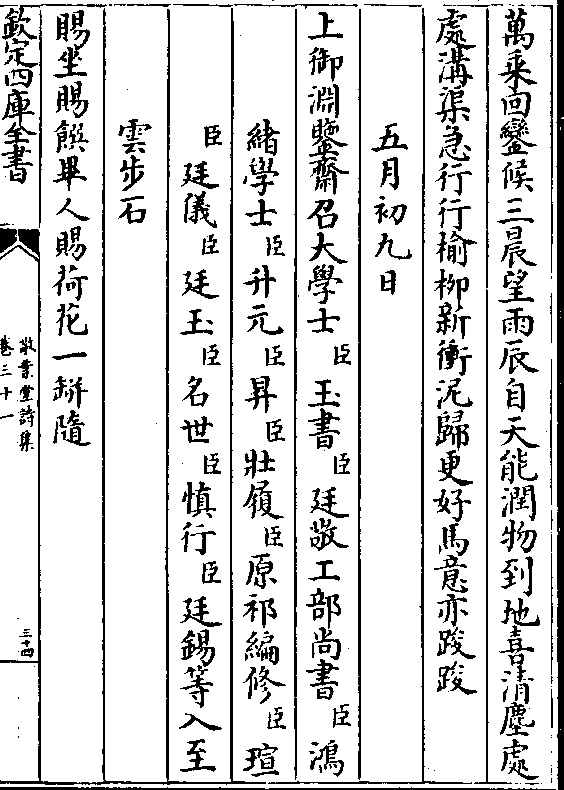 萬乗回鑾候三晨望雨辰自天能潤物到地喜清塵處
處溝渠急行行榆柳新衝泥歸更好馬意亦踆踆
五月初九日
上御淵鑒齋召大學士臣玉書臣廷敬工部尚書臣鴻
緒學士臣升元臣昇臣壯履臣原祁編修臣瑄
臣廷儀臣廷玉臣名世臣慎行臣廷錫等入至
雲步石
賜坐賜饌畢人賜荷花一缾隨
欽定四庫全書
敬業堂詩集
卷三十一
三十四